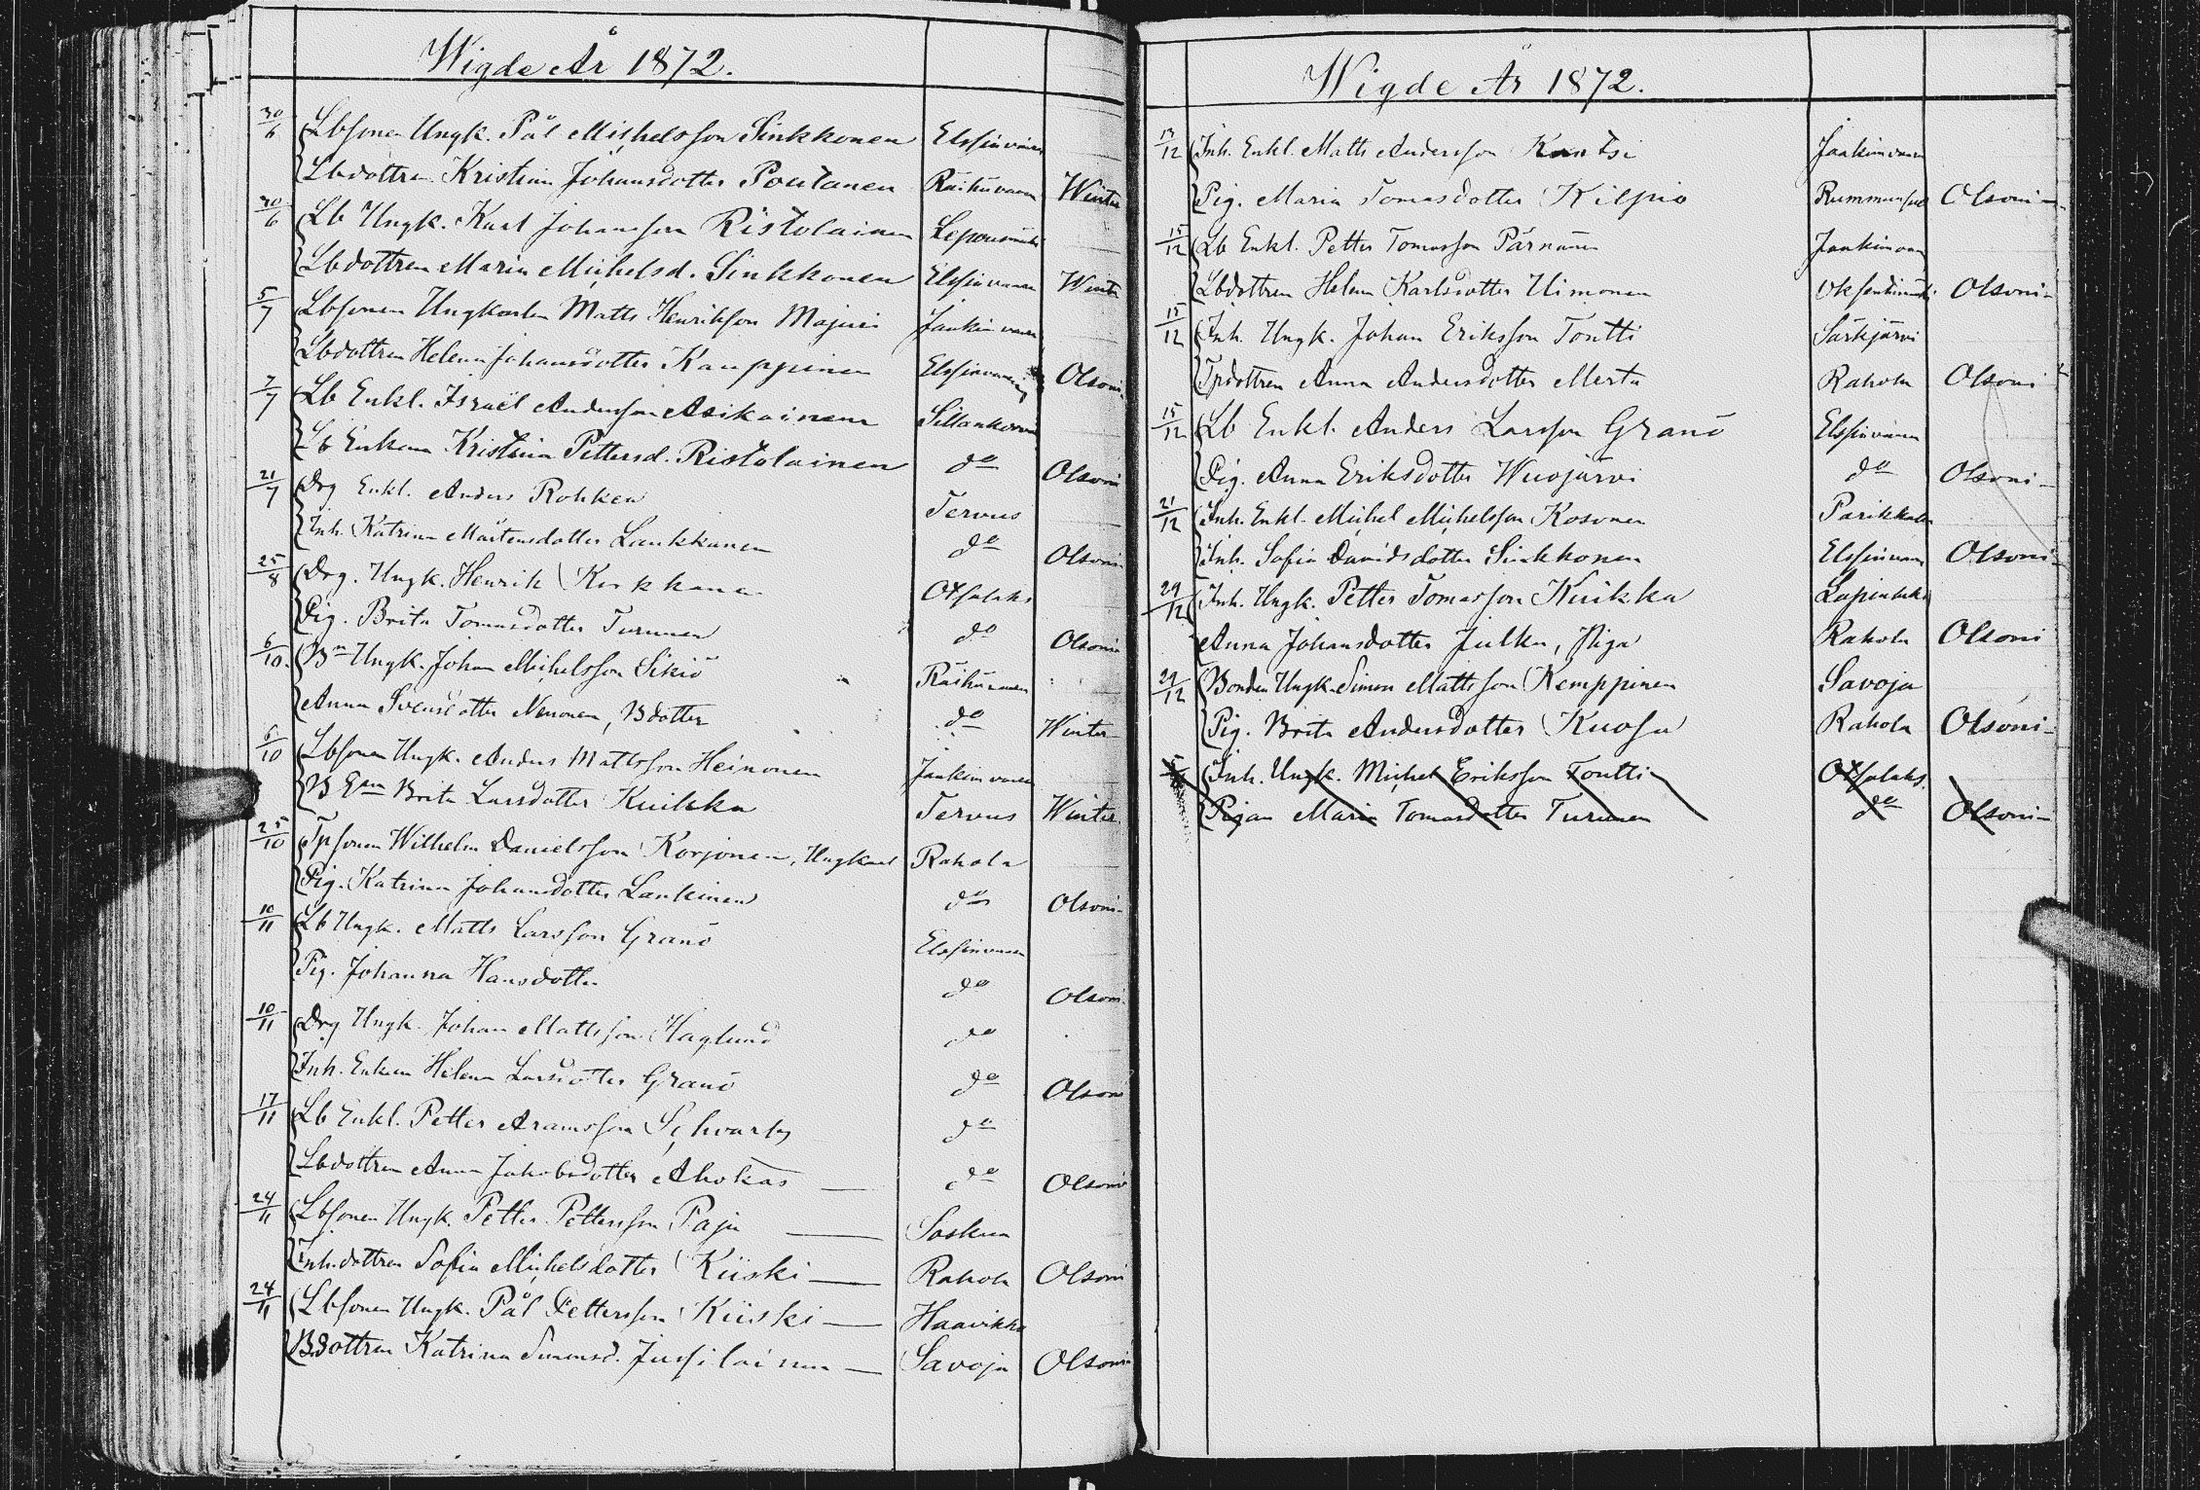 Wigde År 1872.
30/6 Lbsonen Ungk. Pål Michelsson Sinkkonen Elssinvaara
Lbdottren Kristina Johansdotter Poutanen Räihävaara Winter
30/6 Lb Ungk. Karl Johansson Ristolainen
Lbdottren Maria Michelsd. Sinkkonen Elssinvaara Winter
5/7 Lbsonen Ungkarlen Matts Henriksson Majuri Jaakinvaara
Lbdottren Helena Johansdotter Kauppinen Elssinvaara Olsoni
7/7 Lb Enkl. Israël Andersson Asikainen Sillankorva
Lb Enkan Kristina Pettersd. Ristolainen do Olsoni
21/7 Drg Enkl. Anders Rohken Tervus
Inh. Katrina Mårtensdotter Laukkanen do Olsoni
25/8 Drg. Ungk. Henrik Korkkanen Otsalaks
Pig. Brita Tomasdotter Turunen do Olsoni
6/10. Bn Ungk. Johan Michelsson Sikiö Räihävaara
Anna Svensdotter Nenonen, Bdotter do Winter
6/10 Lbsonen Ungk. Anders Mattsson Heinonen Jaakinvaara
B Enk Brita Larsdotter Kuikka Tervus Winter
25/10 Tpsonen Wilhelm Danielsson Korjonen, Ungkarl Rahola
Pig. Katrina Johansdotter Lankinen do Olsoni
10/11 Lb Ungk. Matts Larsson Granö Elssinvaara
Pig. Johanna Hansdotter do Olsoni
10/11 Drg Ungk. Johan Mattsson Haglund do
Inh. Enkan Helena Larsdotter Granö do Olsoni
17/11 Lb Enkl. Petter Aramsson Schvartz do
Lbdottren Anna Jakobsdotter Ahokas do Olsoni
24/11 Lbsonen Ungk. Petter Pettersson Paju Soskua
Inh.dottren Sofia Michelsdotter Kiiski Rahola Olsoni
24/11 Lbsonen Ungk. Pål Pettersson Kiiski Haavikko
Bdottren Katrina Simonsd. Jussilainen Savoja Olsoni
Wigde År 1872.
13/12 Inh. Enkl. Matts Andersson Kontsi Jaakinvaara
Pig. Maria Tomasdotter Kilpiö Olsoni
15/12 Lb Enkl. Petter Tomasson Pärnänen Jaakinvaara
Lbdottren Helena Karlsdotter Uimonen Olsoni
15/12 Inh. Ungk. Johan Eriksson Tontti Särkjärvi
Tpdottren Anna Andersdotter Merta Rahola Olsoni
15/12 Lb Enkl. Anders Larsson Granö Elssinvaara
Pig. Anna Eriksdotter Wuojärvi do Olsoni
21/12 Inh. Enkl. Michel Michelsson Kosonen Parikkala
Inh. Sofia Davidsdotter Sinkkonen Elssinvaara Olsoni
29/12 Inh. Ungk. Petter Tomasson Kuikka Lapinlahti
Anna Johansdotter Julku, Piga Rahola Olsoni
29/12 Bonden Ungk. Simon Mattsson Kemppinen Savoja
Pig. Brita Andersdotter Kuosa Rahola Olsoni
Inh. Ungk. Michel Eriksson Tontti Otsalaks
Pigan Maria Tomasdotter Turunen do Olsoni